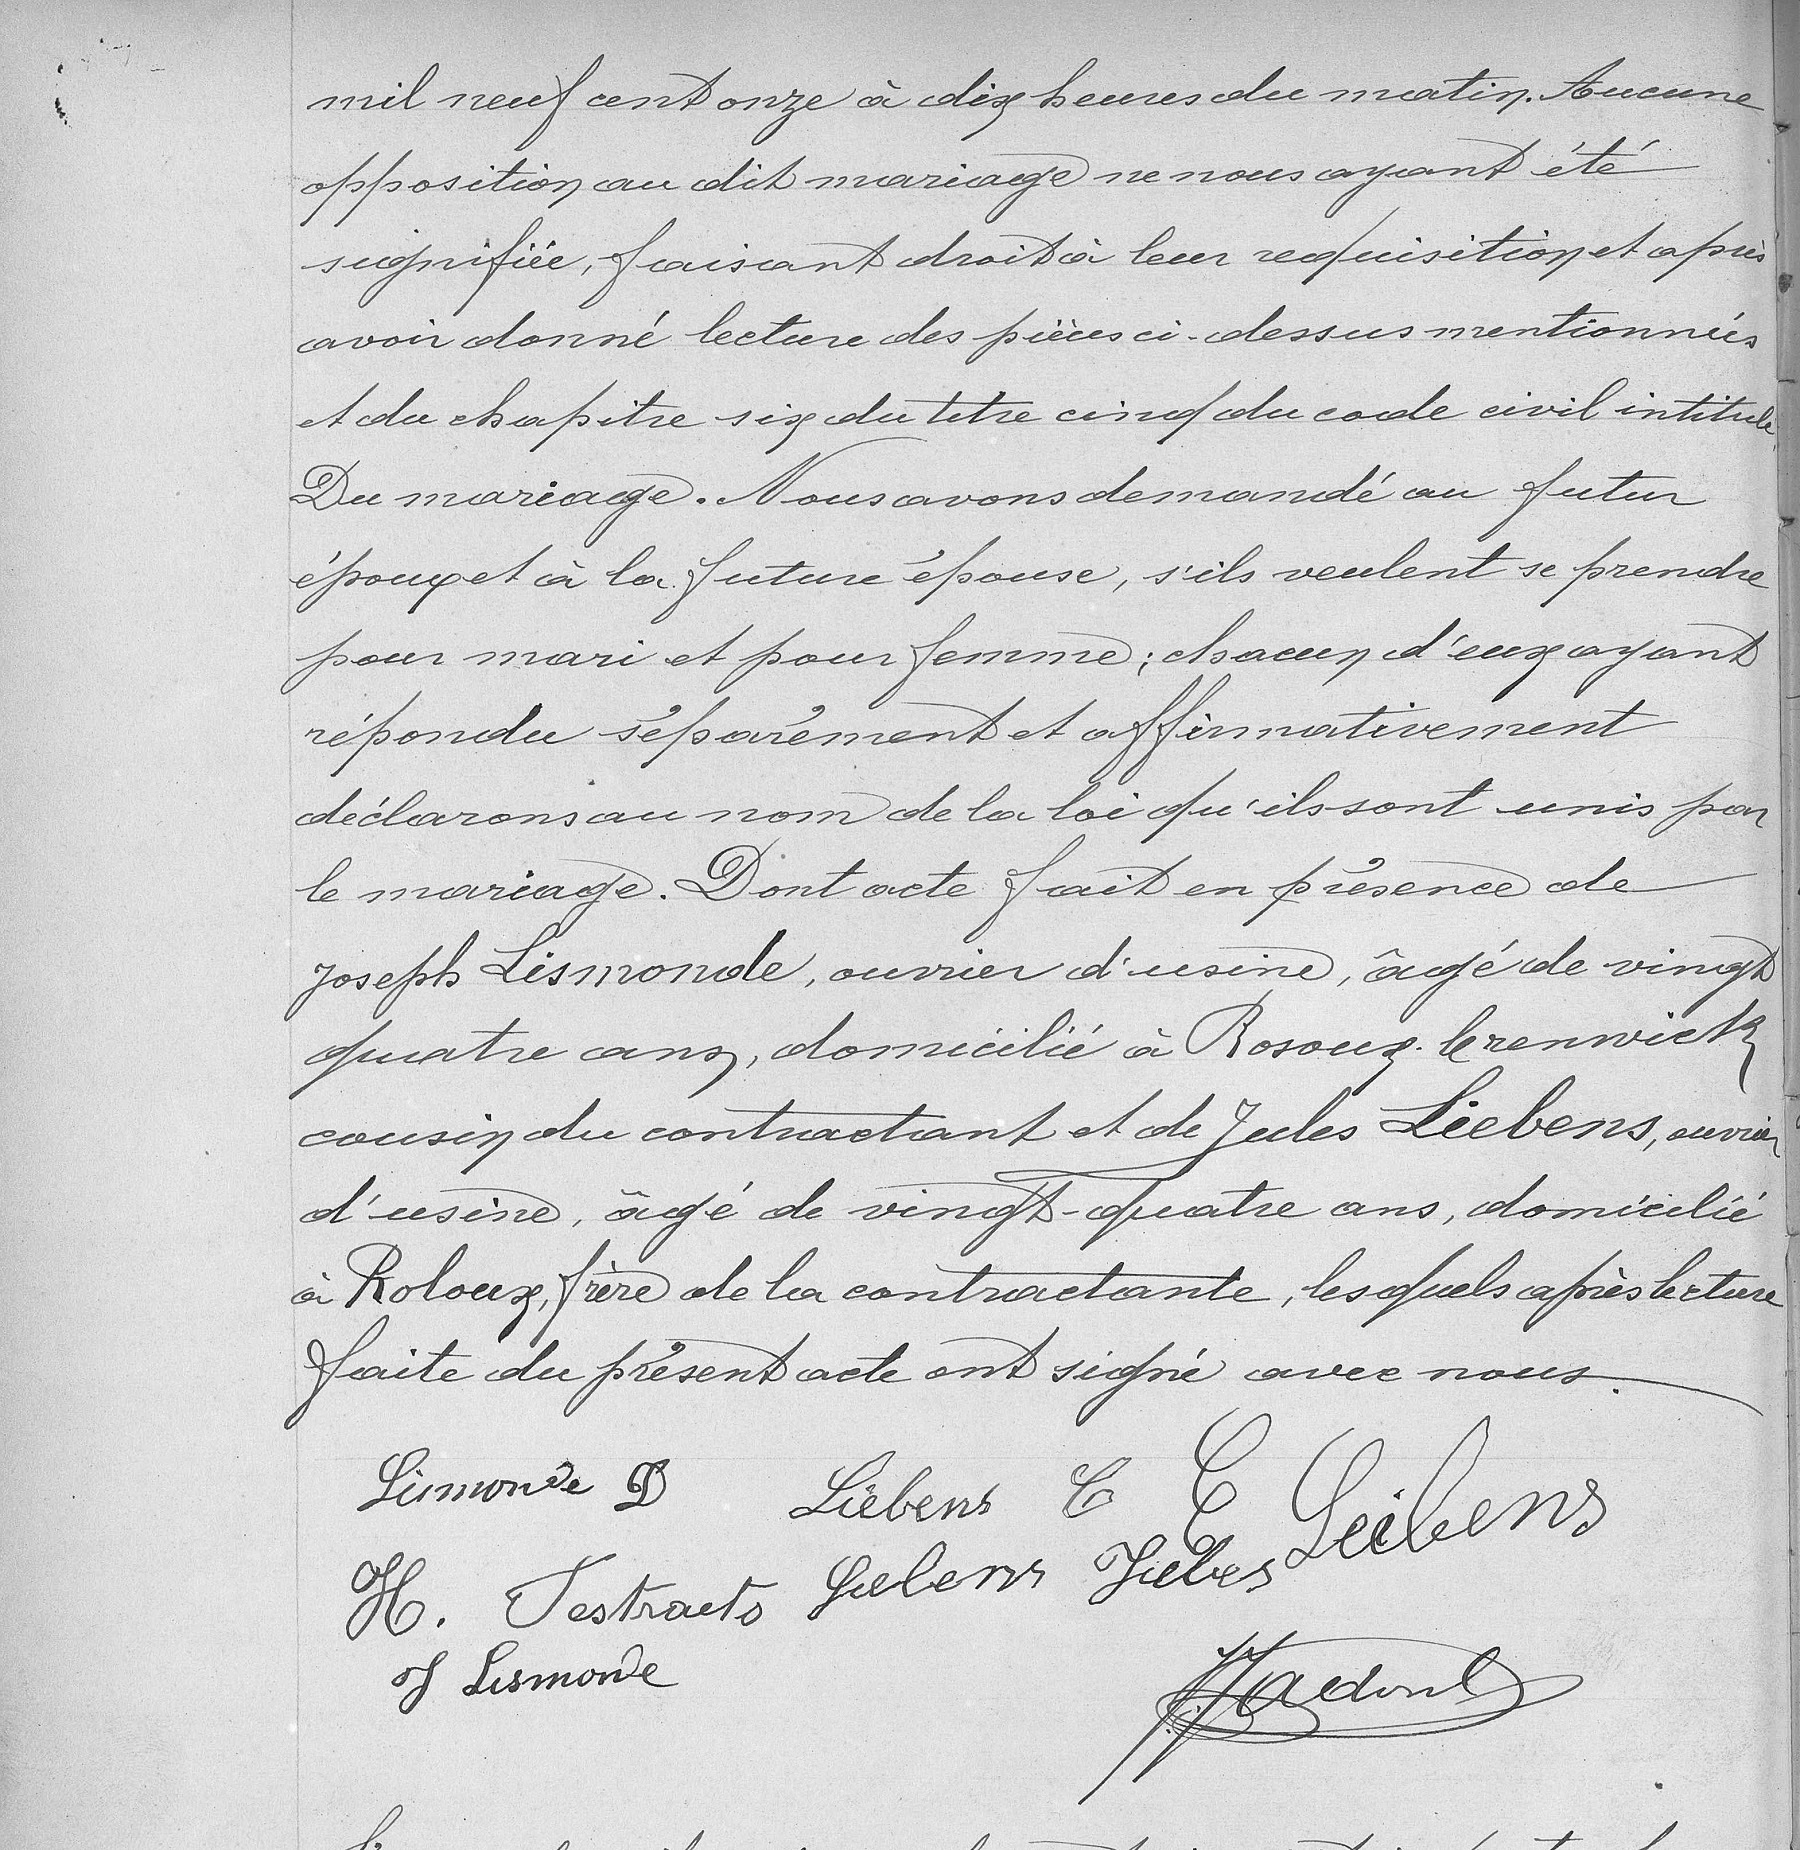 mil neuf cent onze à dix heures du matin. Aucune
opposition au dit mariage ne nous ayant été
signifiée, faisant droit à leur requisition et après
avoir donné lecture des pièces ci-dessus mentionnées
et du chapitre six du titre cinq du code civil intitulé
Du mariage. Nous avons demandé au futur
époux et à la future épouse, s'ils veulent se prendre
pour mari et pour femme; chacun d'eux ayant
répondu séparément et affirmativement
déclarons au nom de la loi qu'ils sont unis par
le mariage. Dont acte fait en présence de
Joseph Lismonde, ouvrier d'usine, âgé de vingt
quatre ans, domicilié à Rosoux-Crenwick
cousin du contractant et de Jules Liebens, ouvrier
d'usine, âgé de vingt-quatre ans, domicilié
à Roloux, frère de la contractante, lesquels après lecture
faite du présent acte ont signé avec nous.
Lismonde D Liebens C C Leibens
H. Testraets Liebens Jules
J Lismonde